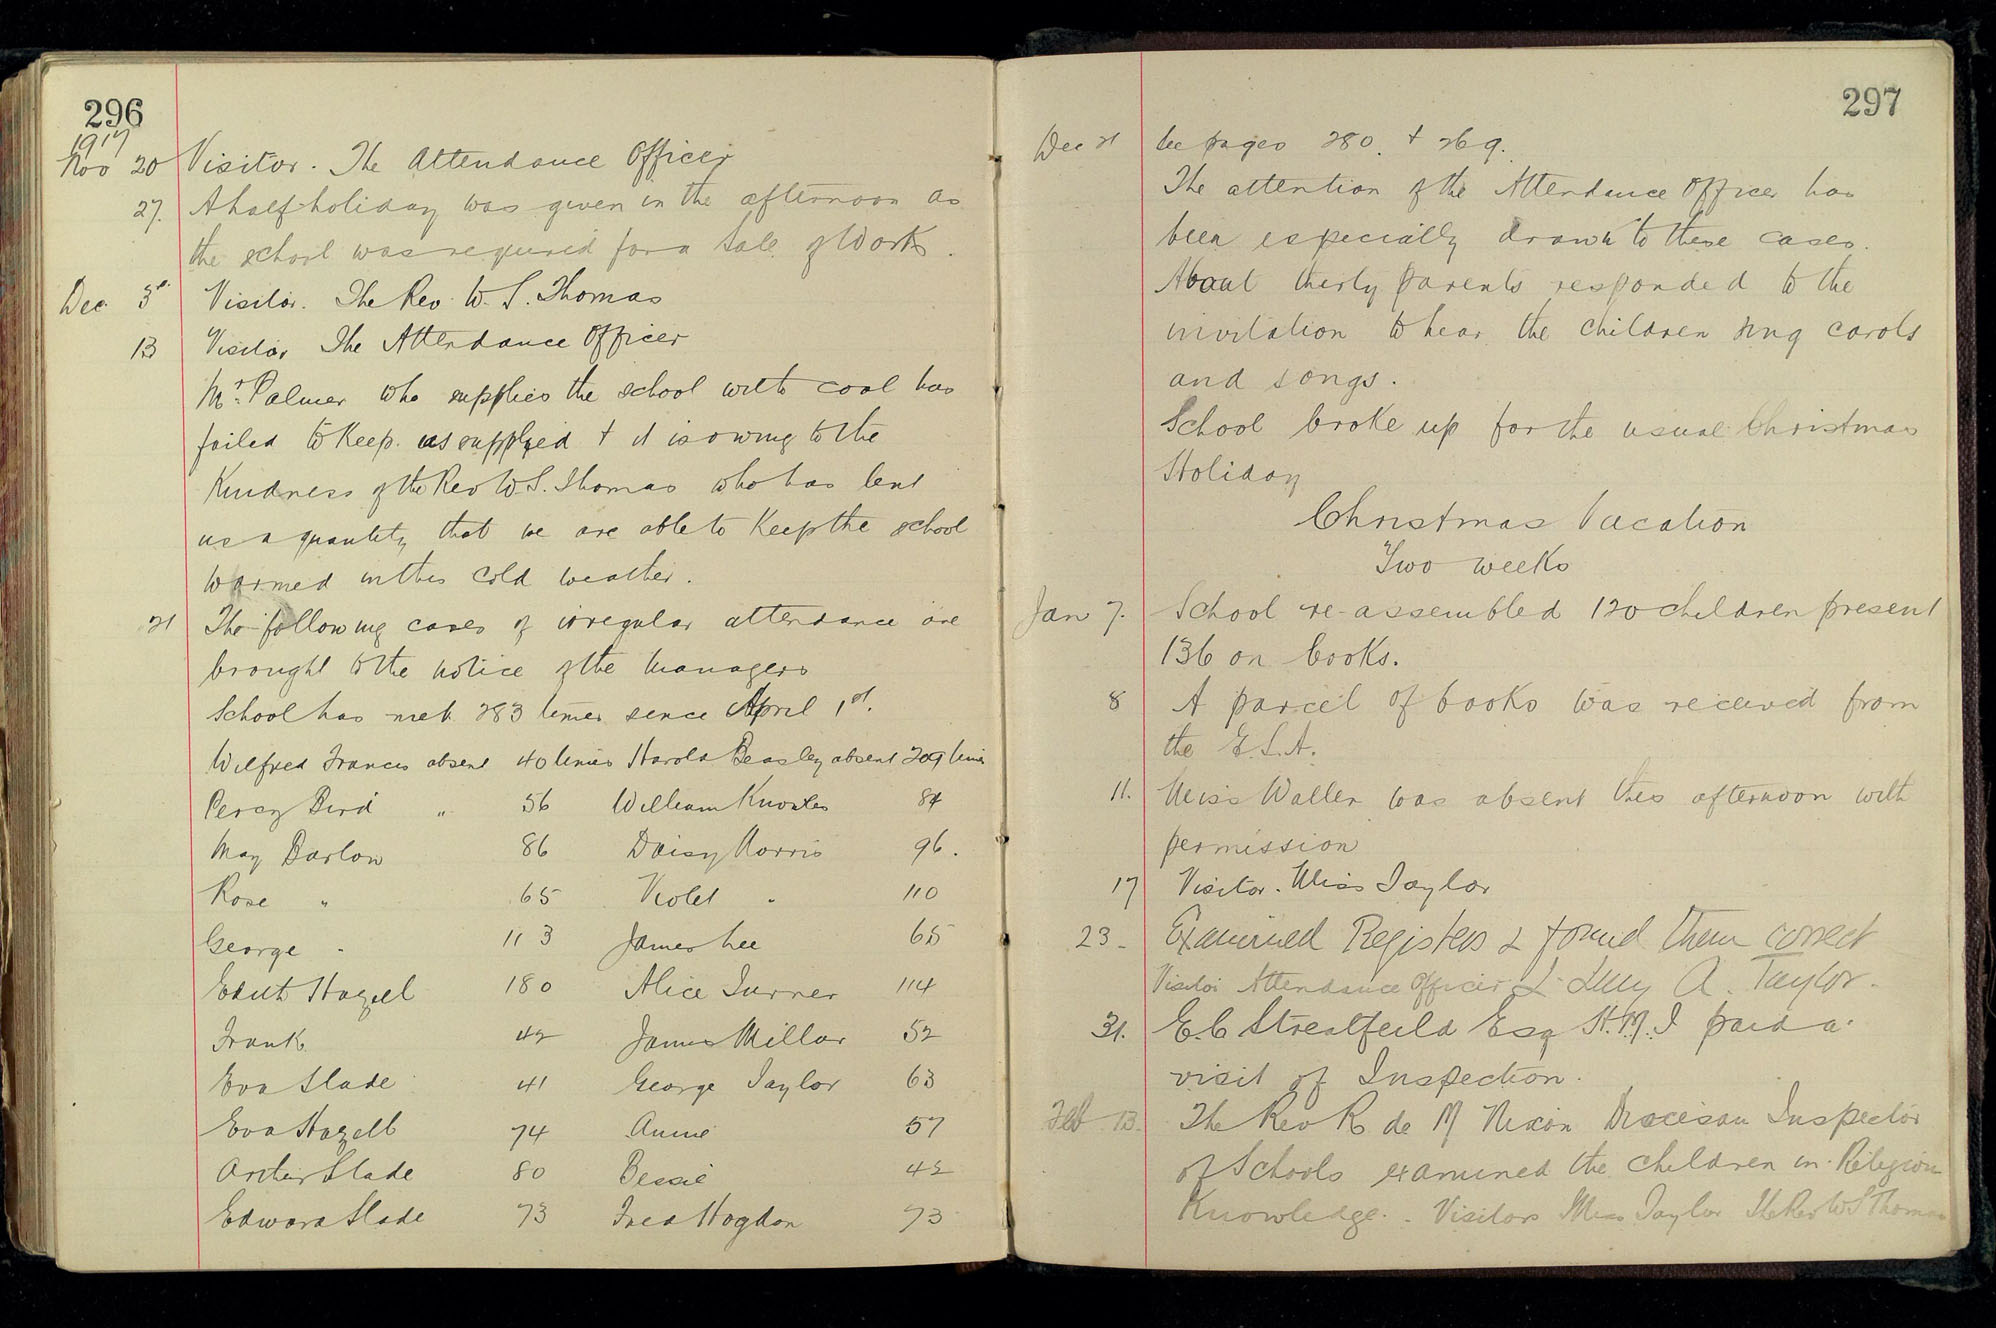 296
1917
Nov 20 Visitor. The Attendance Officer
27. A half-holiday was given in the afternoon as
the school was required for a Sale of Work.
Dec 3rd Visitor. The Rev. W. S. Thomas
13 Visitor The Attendance Officer
Mr. Palmer who supplies the school with coal has
failed to keep us supplied + it is owing to the
Kindness of the Rev W. S. Thomas who has lent
us a quantity that we are able to keep the school
warmed in this cold weather.
21 The following cases of irregular attendance are
brought to the notice of the Managers
School has met 283 times since April 1st.
Wilfred Francis absent 40 times Harold Beasley absent 209 times
Percy Bird " 56 William Knowles 84
May Barlow 86 Daisy Norris 96.
Rose " 65 Violet " 110
George " 113 James Lee 65
Edith Hazell 180 Alice Turner 114
Frank 42 James Millar 52
Eva Slade 41 George Taylor 63
Eva Hazell 74 Annie 57
Arthur Slade 80 Bessie 42
Edward Slade 73 Fred Hogdon 73
297
Dec 21 See pages 280. + 269.
The attention of the Attendance Officer has
been especially drawn to these cases.
About thirty parents responded to the
invitation to hear the children sing carols
and songs.
School broke up for the usual Christmas
Holiday
Christmas Vacation
Two weeks
Jan 7. School re-assembled 120 children present
136 on books.
8 A parcel of books was received from
the E.S.A.
11. Miss Waller was absent this afternoon with
permission
17 Visitor. Miss Taylor
23- Examined Registers & found them correct
Visitor Attendance Officer L. Lucy A. Taylor.
31. E. C Streatfeild Esq H.M.I paid a
visit of Inspection.
Feb 13. The Rev R de M Nixon Diocesan Inspector
of Schools examined the children in Religious
Knowledge. Visitors Miss Taylor The Rev W S Thomas